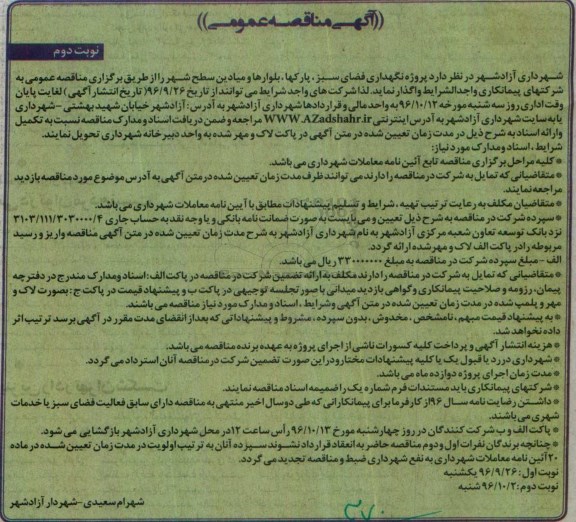 ((آگهی مناقصه عمومی))
نوبت دوم
شهرداری آزادشهر در نظر دارد پروژه نگهداری فضای سبز، پارکها، بلوارها و میادین سطح شهر را از طریق برگزاری مناقصه عمومی به
شرکتهای پیمانکاری واجدالشرایط واگذار نماید. لذا شرکت های واجد شرایط می توانند از تاریخ ۹۶/۹/۲۶ (تاریخ انتشار آگهی) لغایت پایان
وقت اداری روز سه شنبه مورخه ۹۶/۱۰/۱۲ به واحد مالی و قراردادها شهرداری آزادشهر به آدرس: آزادشهر خیابان شهید بهشتی - شهرداری
یا به سایت شهرداری آزادشهر به آدرس اینترنتی WWW.AZadshahr.ir مراجعه و ضمن دریافت اسناد و مدارک مناقصه نسبت به تکمیل
و ارائه اسناد به شرح ذیل در مدت زمان تعیین شده در متن آگهی در پاکت لاک و مهر شده به واحد دبیرخانه شهرداری تحویل نمایند.
شرایط، اسناد و مدارک مورد نیاز:
* کلیه مراحل برگزاری مناقصه تابع آئین نامه معاملات شهرداری می باشد.
* متقاضیانی که تمایل به شرکت در مناقصه را دارند می توانند ظرف مدت زمان تعیین شده در متن آگهی به آدرس موضوع مورد مناقصه بازدید
مراجعه نمایند.
* متقاضیان مکلف به رعایت ترتیب تهیه، شرایط و تسلیم پیشنهادات مطابق با آیین نامه معاملات شهرداری می باشد.
* سپرده شرکت در مناقصه به شرح ذیل تعیین و می بایست به صورت ضمانت نامه بانکی و یا وجه نقد به حساب جاری ۳۱۰۳/۱۱۱/۳۰۳۰۰۰۰/۴
نزد بانک توسعه تعاون شعبه مرکزی آزادشهر به نام شهرداری آزادشهر به شرح مدت زمان تعیین شده در متن آگهی مناقصه واریز و رسید
مربوطه را در پاکت الف لاک و مهر شده ارائه گردد.
الف - مبلغ سپرده شرکت در مناقصه به مبلغ ۳۳۰۰۰۰۰۰۰ ریال می باشد.
* متقاضیانی که تمایل به شرکت در مناقصه را دارند مکلف به ارائه تضمین شرکت در مناقصه در پاکت الف: اسناد و مدارک مندرج در دفترچه
پیمان، رزومه و صلاحیت پیمانکاری و گواهی بازدید میدانی با صورتجلسه توجیهی در پاکت ب و پیشنهاد قیمت در پاکت ج: بصورت لاک و
مهر و پلمپ شده در مدت زمان تعیین شده در متن آگهی و شرایط، اسناد و مدارک مورد نیاز مناقصه می باشند.
* به پیشنهاد قیمت مبهم، نامشخص، مخدوش، بدون سپرده، مشروط و پیشنهاداتی که بعد از انقضای مدت مقرر در آگهی برسد ترتیب اثر
داده نخواهد شد.
* هزینه انتشار آگهی و پرداخت کلیه کسورات ناشی از اجرای پروژه به عهده برنده مناقصه می باشد.
* شهرداری در رد یا قبول یک یا کلیه پیشنهادات مختار و در این صورت تضمین شرکت در مناقصه آنان استرداد می گردد.
* مدت زمان اجرای پروژه دوازده ماه می باشد.
* شرکتهای پیمانکاری باید مستندات فرم شماره یک را ضمیمه اسناد مناقصه نمایند.
* داشتن رضایت نامه سال ۹۶ از کارفرما برای پیمانکارانی که طی دو سال اخیر منتهی به مناقصه دارای سابق فعالیت فضای سبز یا خدمات
شهری می باشند.
* پاکت الف و ب شرکت کنندگان در روز چهارشنبه مورخ ۹۶/۱۰/۱۳ رأس ساعت ۱۲ در محل شهرداری آزادشهر بازگشایی می شود.
* چنانچه برندگان نفرات اول و دوم مناقصه حاضر به انعقاد قرارداد نشوند سپرده آنان به ترتیب اولویت در مدت زمان تعیین شده در ماده
۲۰ آئین نامه معاملات شهرداری به نفع شهرداری ضبط و مناقصه تجدید می گردد.
نوبت اول: ۹۶/۹/۲۶ یکشنبه
نوبت دوم: ۹۶/۱۰/۲ شنبه
شهرام سعیدی - شهردار آزادشهر